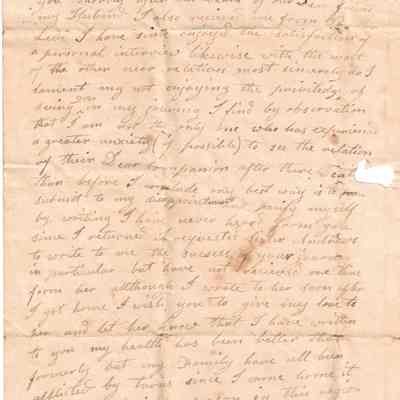 my Husband I also received one from by
Levi I have since enjoyed the satisfaction of
a personal interview likewise with the most
of the other near relations most sincerely do I
lament my not enjoying the priviledge of
seeing you on my journey I find by observation
that I am not the only one who has experienced
a greater anxiety (if possible) to see the relation
of their Dear companion after there
than before I conclude my best way is to
submit to my disappointment & gratify myself
by writing I have never heard from you
since I returned I requested Sister
to write to me the success of your journey
in particular but have not received one line
form her although I wrote to her soon after
I got home I wish you to give my love to
her and let her know that I have written
to you my health has been better than
formerly but my Family have all been
afflicted by turns since I came home it
this